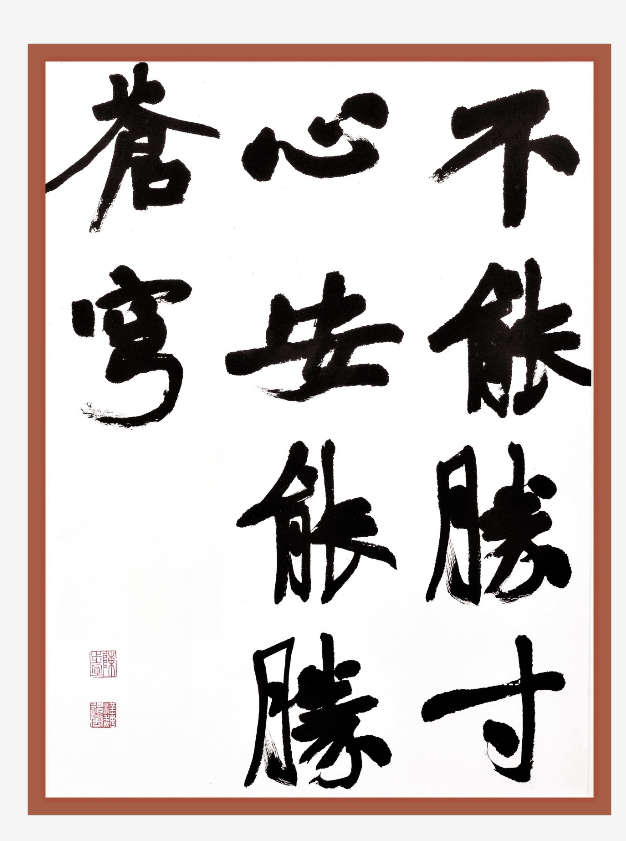 不能勝寸
心安能勝
蒼穹